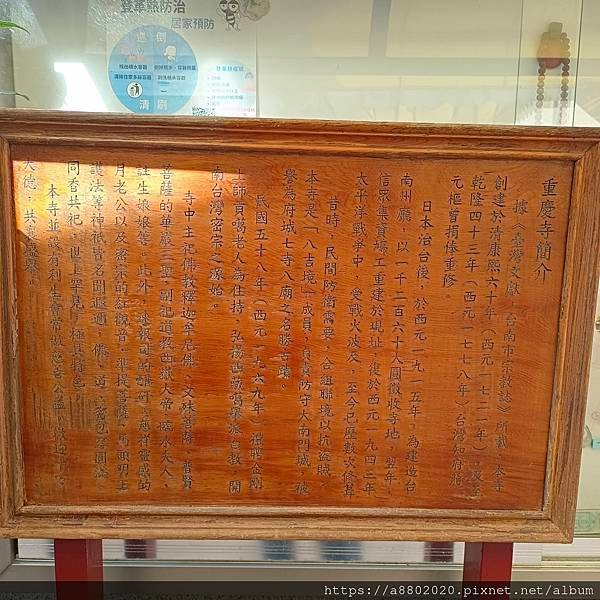 登革熱防治
居家預防
巡 倒
清 刷
重慶寺簡介
據《臺灣文獻，台南市宗教誌》所載，本寺
創建於清康熙六十年（西元一七二一年），及至
乾隆四十三年（西元一七七八年）台灣知府蔣
元樞曾捐俸重修。
日本治台後，於西元一九一五年，為建造台
南州廳，以一千二百六十大圓徵收寺地，翌年，
信眾集資鳩工重建於現址，復於西元一九四二年
太平洋戰爭中，受戰火波及，至今已歷數次修葺
昔時，民間防衛需要，合組聯境以抗盜賊，
本寺是「八吉境」成員，負責防守大南門城，被
譽為府城七寺八廟之名勝古蹟。
民國五十八年（西元一九六九年）禮聘金剛
上師貢噶老人為住持，弘揚西藏噶舉派白教，開
南台灣密宗之源始。
寺中主祀佛教釋迦牟尼佛、文殊菩薩、普賢
菩薩的華嚴三聖，副祀道教西嶽大帝、臨水夫人、
註生娘娘等。此外，速報司的醋矸、
月老公以及密宗的 觀音、準提菩薩、
護法等神祇皆名聞遐邇，佛、道、密 圓滿
同香共祀，世上罕見，極具特色。
本寺並設有
大德，共襄盛舉。
https://a8802020.pixnet.net/album